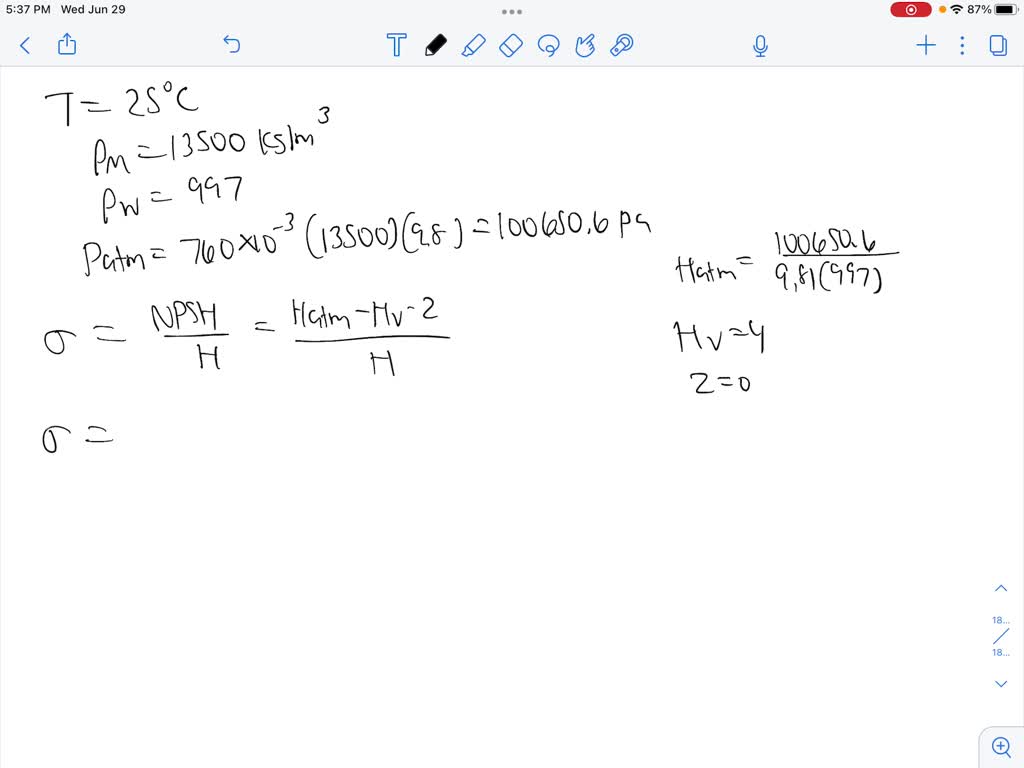 5:37 PM Wed Jun 29
87%
T = 25°C
ρM = 13500 kg/m³
ρw = 997
Patm = 760×10⁻³ (13500)(9.8) = 100650.6 pa
Hatm = 100650.6 / 9.81(997)
σ = NPSH / H = Hatm - Hv - z / H
Hv = 4
z = 0
σ =
18...
18...